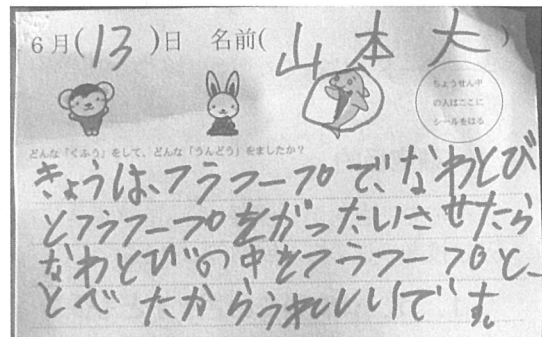 6月(13)日 名前(山本大)
ちょうせん中
の人はここに
シールをはる
どんな「くふう」をして、どんな「うんどう」をましたか？
きょうは、フラフープで、なわとび
とフラフープをがったいさせたら
なわとびの中をフラフープと、
とべたからうれしいです。